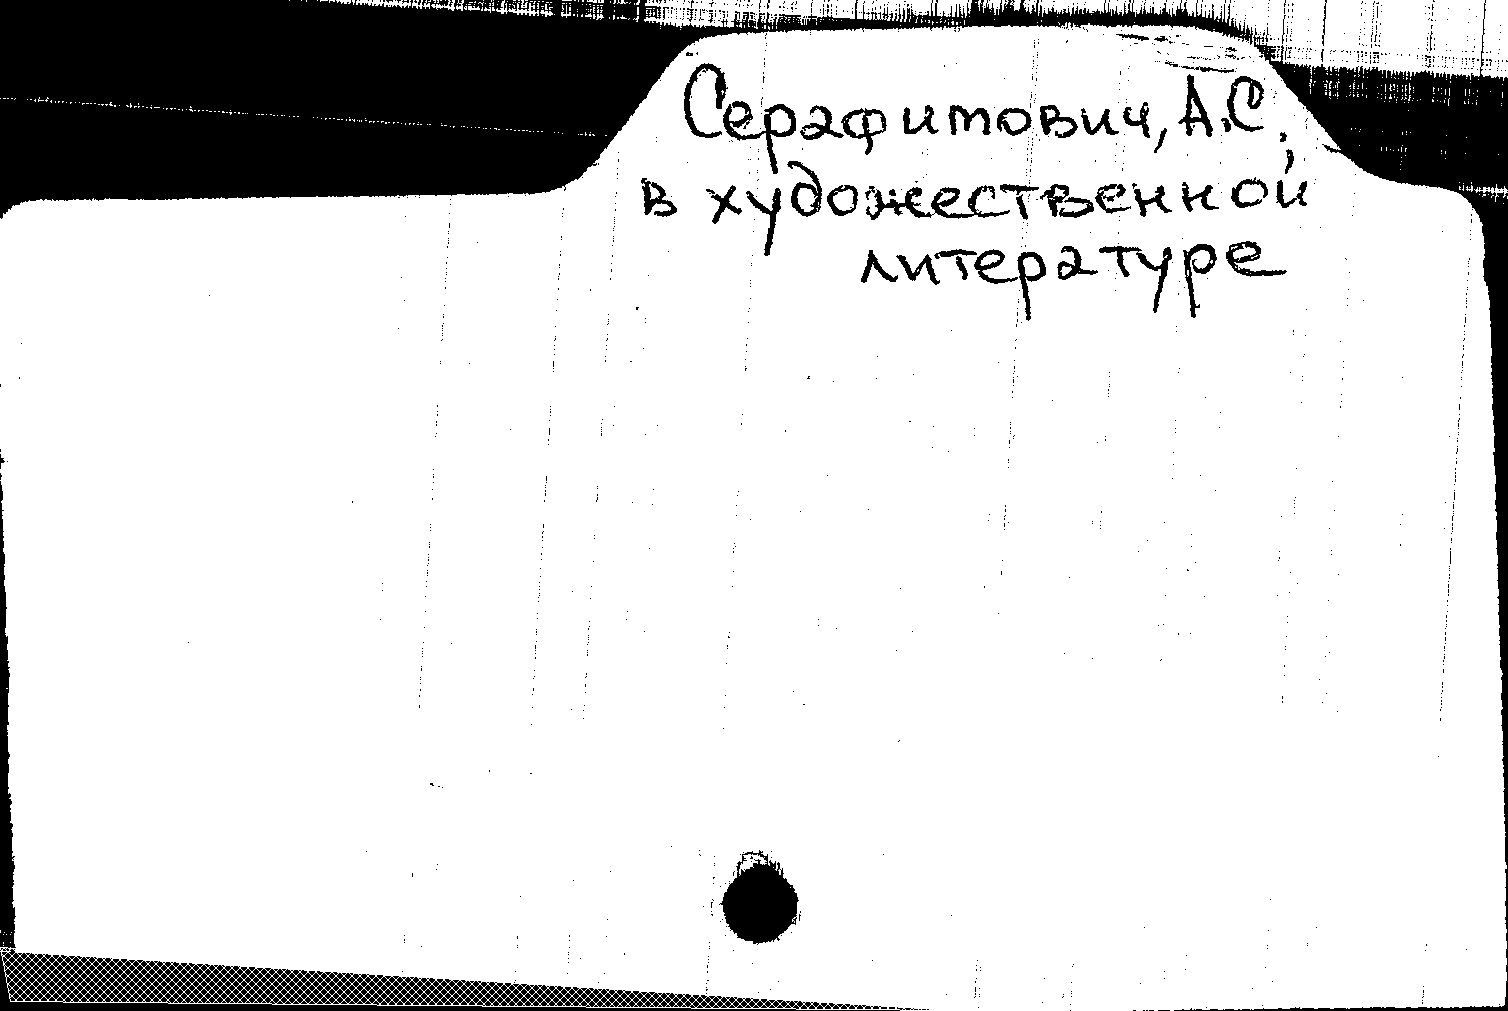 Серафимович, А.С.,
в художественной
литературе